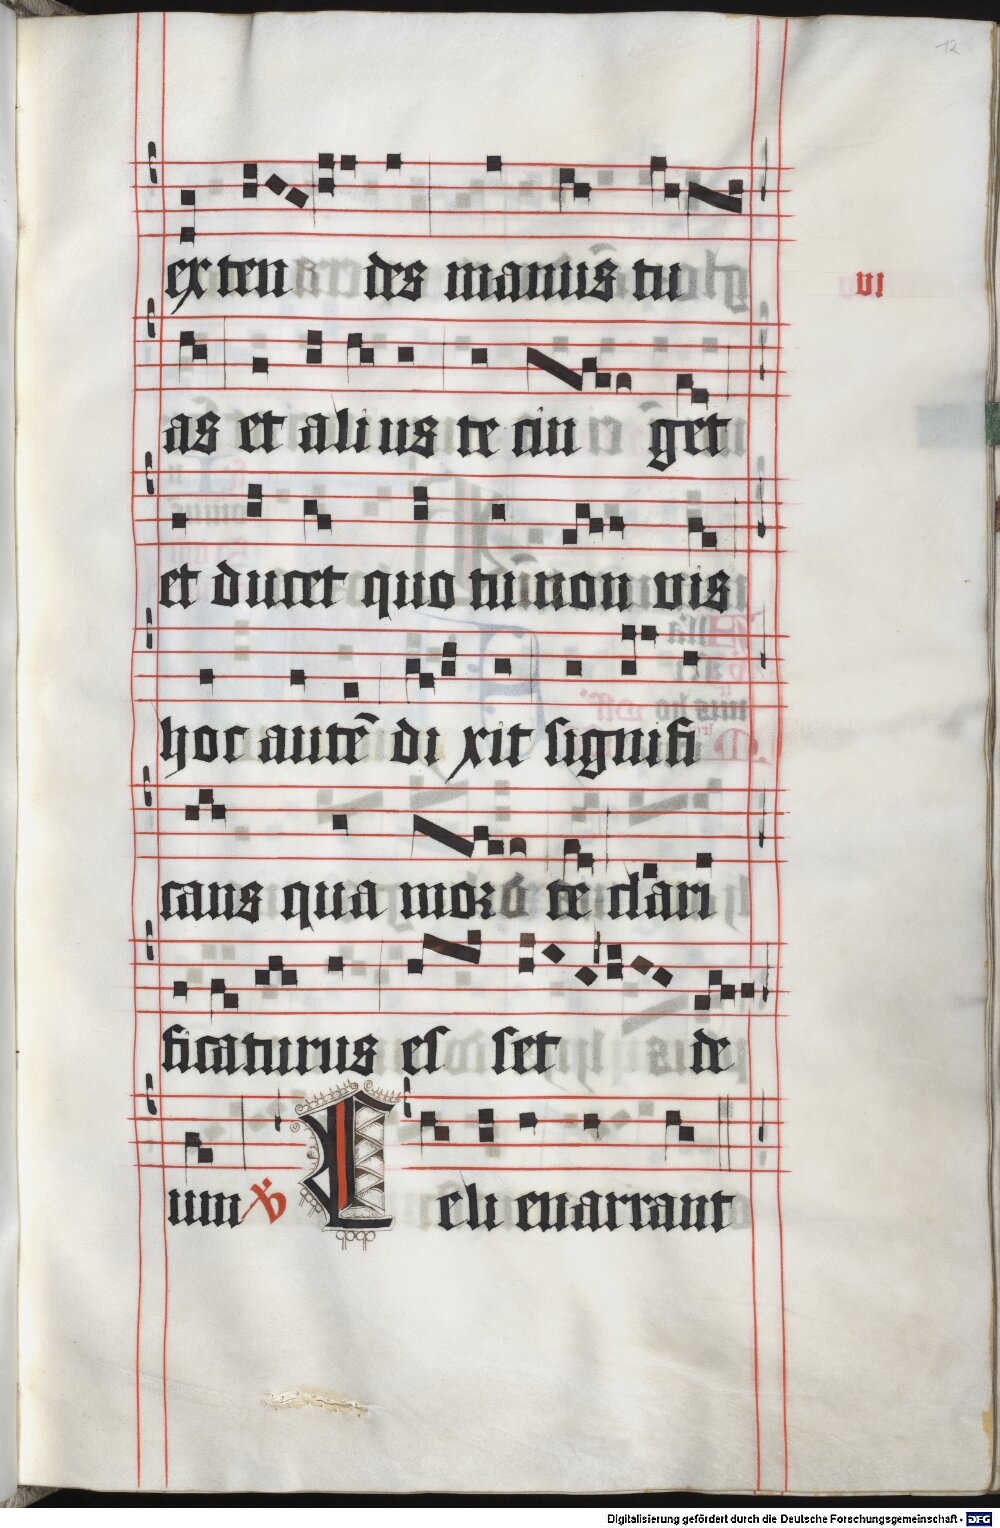 12
exten des manus tu
VI
as et alius te cin get
et ducet quo tu non vis
hoc autē di xit signifi
cans qua mor te clari
ficaturus es set de
um ℣ Celi enarrant
Digitalisierung gefördert durch die Deutsche Forschungsgemeinschaft - DFG